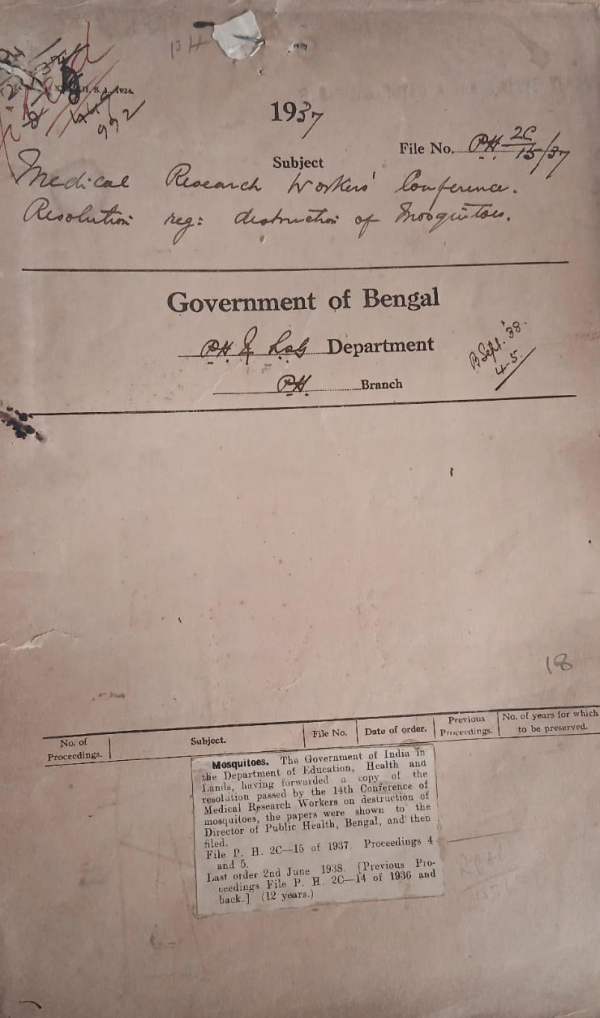 PH
992
1937
File No. PH 2C/15/37
Subject
Medical Research Workers' Conference.
Resolution reg: destruction of Mosquitoes.
Government of Bengal
PH & LSG Department
B Sept. '38.
4-5
PH Branch
18
No. of Proceedings. Subject. File No. Date of order. Previous Proceedings. No. of years for which to be preserved.
Mosquitoes. The Government of India in
the Department of Education, Health and
Lands, having forwarded a copy of the
resolution passed by the 14th Conference of
Medical Research Workers on destruction of
mosquitoes, the papers were shown to the
Director of Public Health, Bengal, and then
filed.
File P. H. 2C—15 of 1937. Proceedings 4
and 5.
Last order 2nd June 1938. [Previous Pro-
ceedings File P. H. 2C—14 of 1936 and
back.] (12 years.)